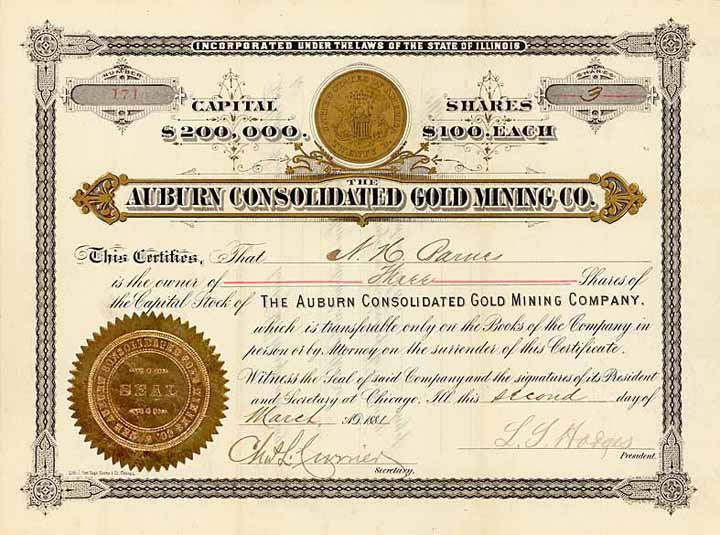 INCORPORATED UNDER THE LAWS OF THE STATE OF ILLINOIS
NUMBER
171
SHARES
3
CAPITAL
$200,000.
SHARES
$100. EACH
THE
AUBURN CONSOLIDATED GOLD MINING CO.
This Certifies, That N. H. Barnes
is the owner of Three Shares of
the Capital Stock of THE AUBURN CONSOLIDATED GOLD MINING COMPANY.
which is transferable only on the Books of the Company in
person or by Attorney on the surrender of this Certificate.
Witness the Seal of said Company and the signatures of its President
and Secretary at Chicago. Ill. this second day of
March A.D. 1881
THE AUBURN CONSOLIDATED GOLD MINING CO.
SEAL
Chas. L. Currier
Secretary.
L. G. Hodges
President.